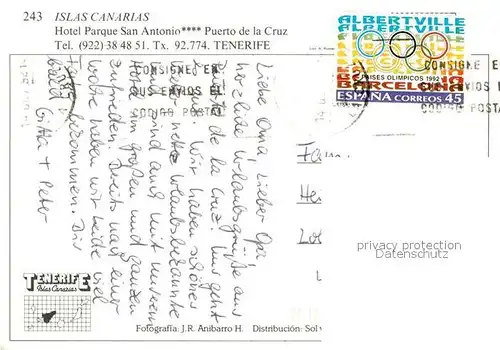 243 ISLAS CANARIAS
Hotel Parque San Antonio**** Puerto de la Cruz
Tel. (922) 38 48 51. Tx. 92.774. TENERIFE
ALBERTVILLE
ALBERTVILLE
PAISES OLIMPICOS 1992
BARCELONA
ESPAÑA CORREOS 45
CONSIGNE EN
SUS ENVIOS EL
CODIGO POSTAL
CONSIGNE E
SUS ENVIOS
CODIGO POSTA
Liebe Oma, Lieber Opa,
herzliche Urlaubsgrüße aus
Puerto de la Cruz! Uns geht
es gut. Wir haben schönes
nette Urlaubsbekannte
sind auch mit unserem
Hotel im großen und ganzen
zufrieden. Bereits nach einer
Woche haben wir beide viel
bekommen. Bis
bald
Gitta + Peter
privacy protection
Datenschutz
TENERIFE
Islas Canarias
Fotografía: J.R. Anibarro H. Distribución: Sol